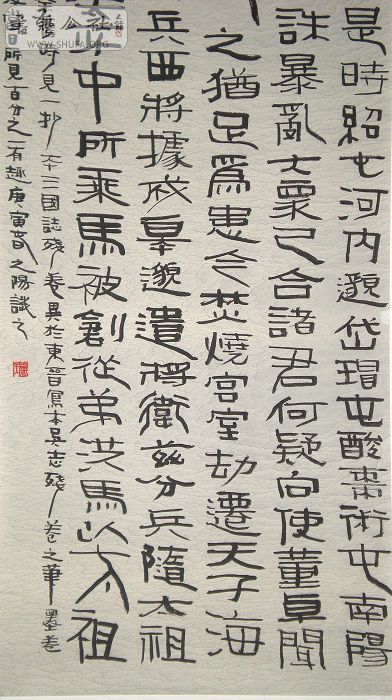 是時紹屯河內邈岱瑁屯酸棗術屯南陽
誅暴亂大眾已合諸君何疑向使董卓聞
之猶足為患今焚燒宮室劫遷天子海
兵西將據成皋邈遣將衛茲分兵隨太祖
中所乘馬被創從弟洪馬以太祖
時見一抄本三國誌殘卷異於東晉寫本吳志殘卷之筆墨卷
所見百分之一有趣庚寅春之陽識之
公社
www.SHUFA.ORG